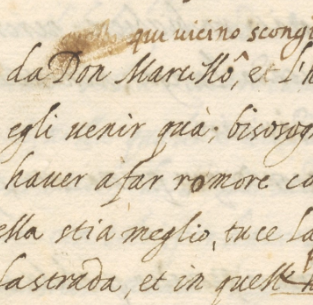 qui vicino scongi
da Don Marcillô, et l'h
egli uenir quà; bisosog
hauer a far romore co
ella stia meglio, tu ce la
la strada, et in quell